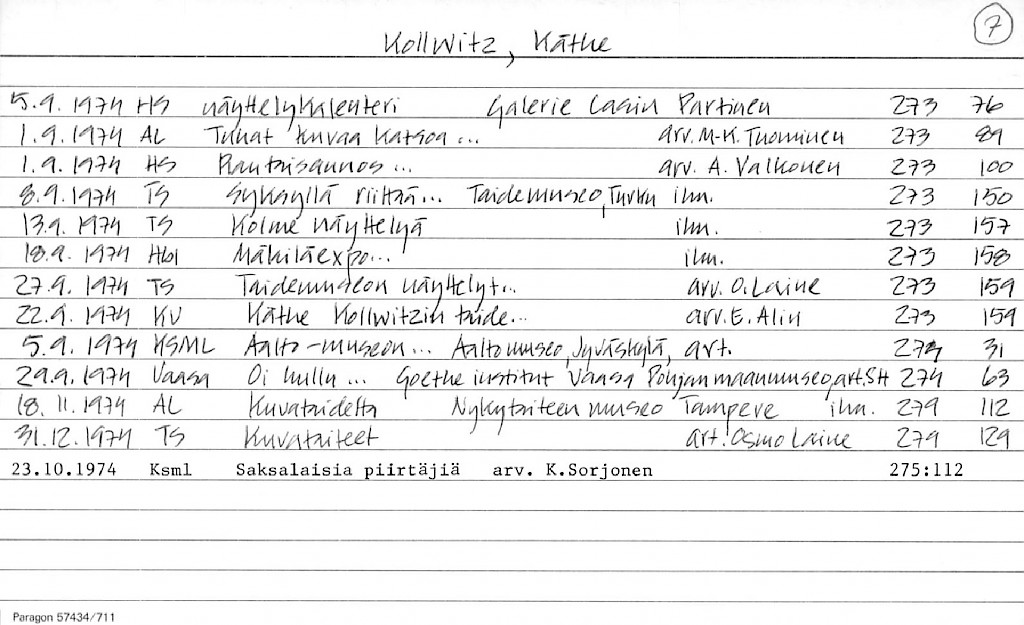 7
Kollwitz, Käthe
5.9. 1974 HS näyttelykalenteri Galerie Casin Partinen 273 76
1.9. 1974 AL Tuhat kuvaa katsoa... arv. M-K. Tuominen 273 89
1.9. 1974 HS Rautaisannos... arv. A. Valkonen 273 100
8.9. 1974 TS Syksyllä riittää... Taidemuseo, Turku ilm. 273 150
13.9. 1974 TS Kolme näyttelyä ilm. 273 157
18.9. 1974 Hbl Mäkiläexpo... ilm. 273 158
27.9. 1974 TS Taidemuseon näyttelyt... arv. O. Laine 273 159
22.9. 1974 KU Käthe Kollwitzin taide... arv. E. Alin 273 159
5.9. 1974 KSML Aalto-museon... Aaltomuseo, Jyväskylä, art. 274 31
29.9. 1974 Vaasa Oi kullu... Goethe institut Vaasa Pohjanmaanmuseo, art. SH 274 63
18.11.1974 AL Kuvataidetta Nykytaiteen museo Tampere ilm. 279 112
31.12.1974 TS Kuvataiteet art. Osmo Laine 279 129
23.10.1974 Ksml Saksalaisia piirtäjiä arv. K.Sorjonen 275:112
Paragon 57434/711